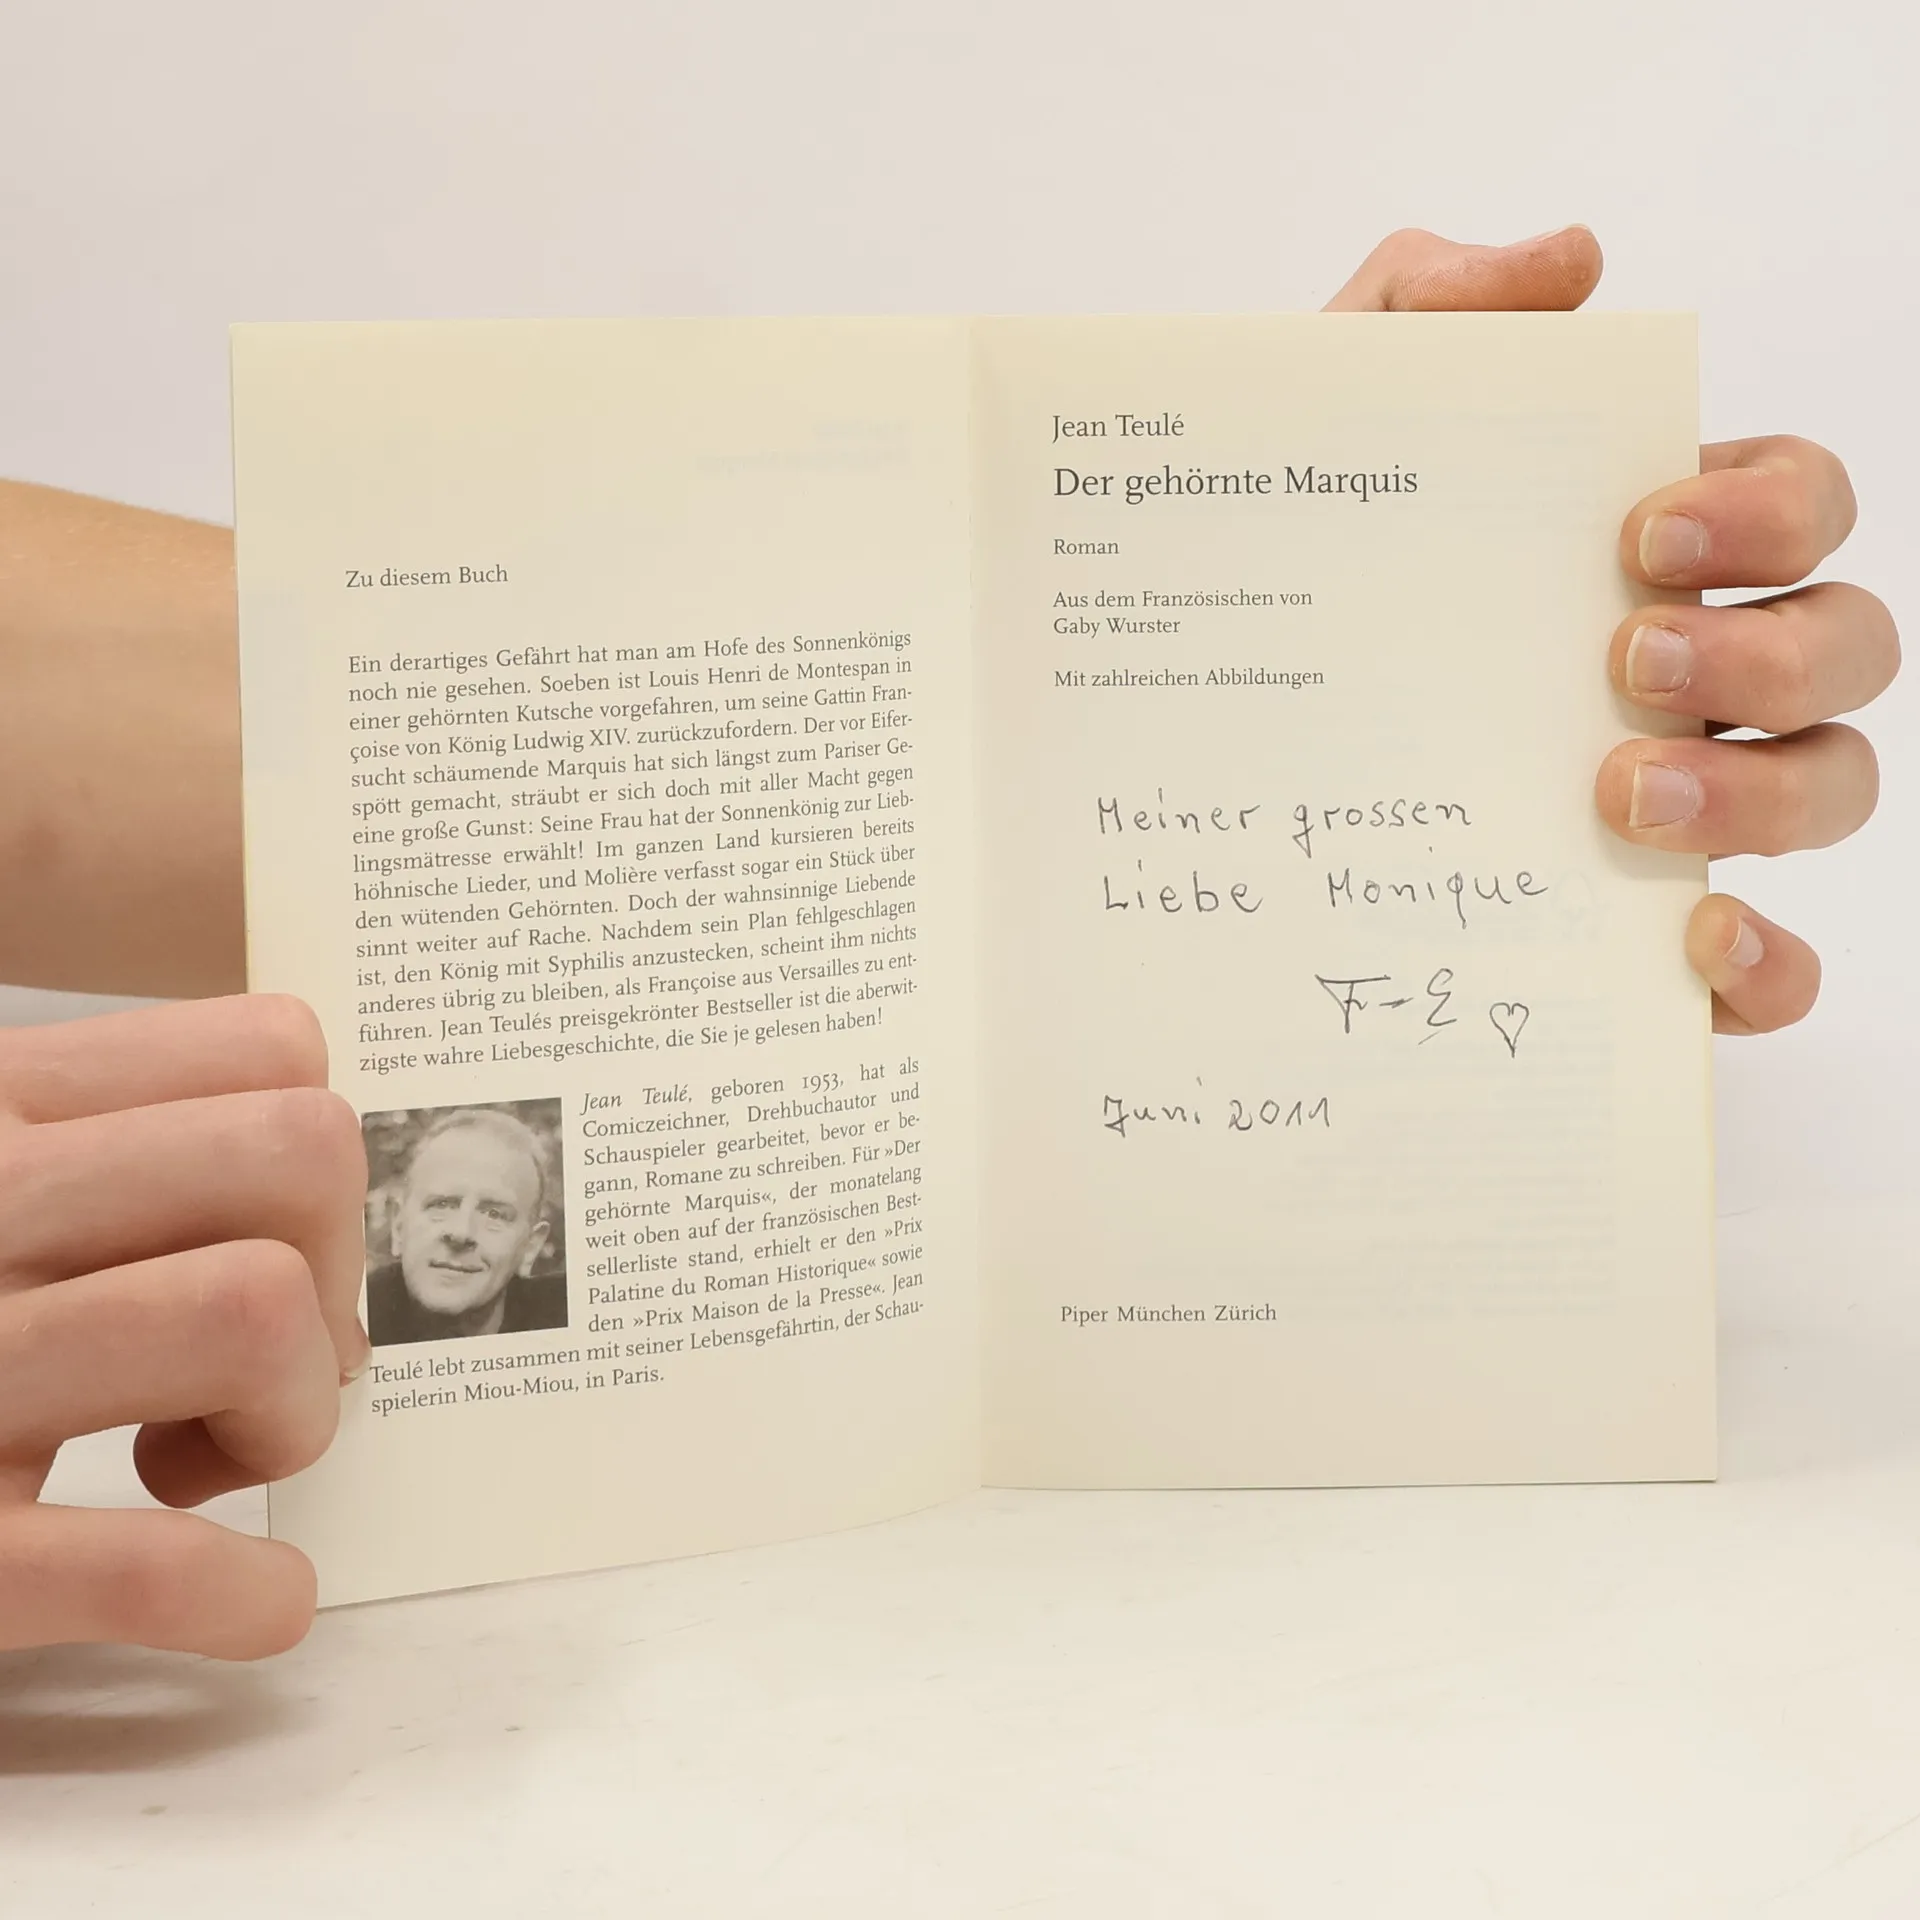 Zu diesem Buch
Ein derartiges Gefährt hat man am Hofe des Sonnenkönigs
noch nie gesehen. Soeben ist Louis Henri de Montespan in
einer gehörnten Kutsche vorgefahren, um seine Gattin Fran-
çoise von König Ludwig XIV. zurückzufordern. Der vor Eifer-
sucht schäumende Marquis hat sich längst zum Pariser Ge-
spött gemacht, sträubt er sich doch mit aller Macht gegen
eine große Gunst: Seine Frau hat der Sonnenkönig zur Lieb-
lingsmätresse erwählt! Im ganzen Land kursieren bereits
höhnische Lieder, und Molière verfasst sogar ein Stück über
den wütenden Gehörnten. Doch der wahnsinnige Liebende
sinnt weiter auf Rache. Nachdem sein Plan fehlgeschlagen
ist, den König mit Syphilis anzustecken, scheint ihm nichts
anderes übrig zu bleiben, als Françoise aus Versailles zu ent-
führen. Jean Teulés preisgekrönter Bestseller ist die aberwit-
zigste wahre Liebesgeschichte, die Sie je gelesen haben!
Jean Teulé, geboren 1953, hat als
Comiczeichner, Drehbuchautor und
Schauspieler gearbeitet, bevor er be-
gann, Romane zu schreiben. Für »Der
gehörnte Marquis«, der monatelang
weit oben auf der französischen Best-
sellerliste stand, erhielt er den »Prix
Palatine du Roman Historique« sowie
den »Prix Maison de la Presse«. Jean
Teulé lebt zusammen mit seiner Lebensgefährtin, der Schau-
spielerin Miou-Miou, in Paris.
Jean Teulé
Der gehörnte Marquis
Roman
Aus dem Französischen von
Gaby Wurster
Mit zahlreichen Abbildungen
Meiner grossen
Liebe Monique
F-E ♡
Juni 2011
Piper München Zürich